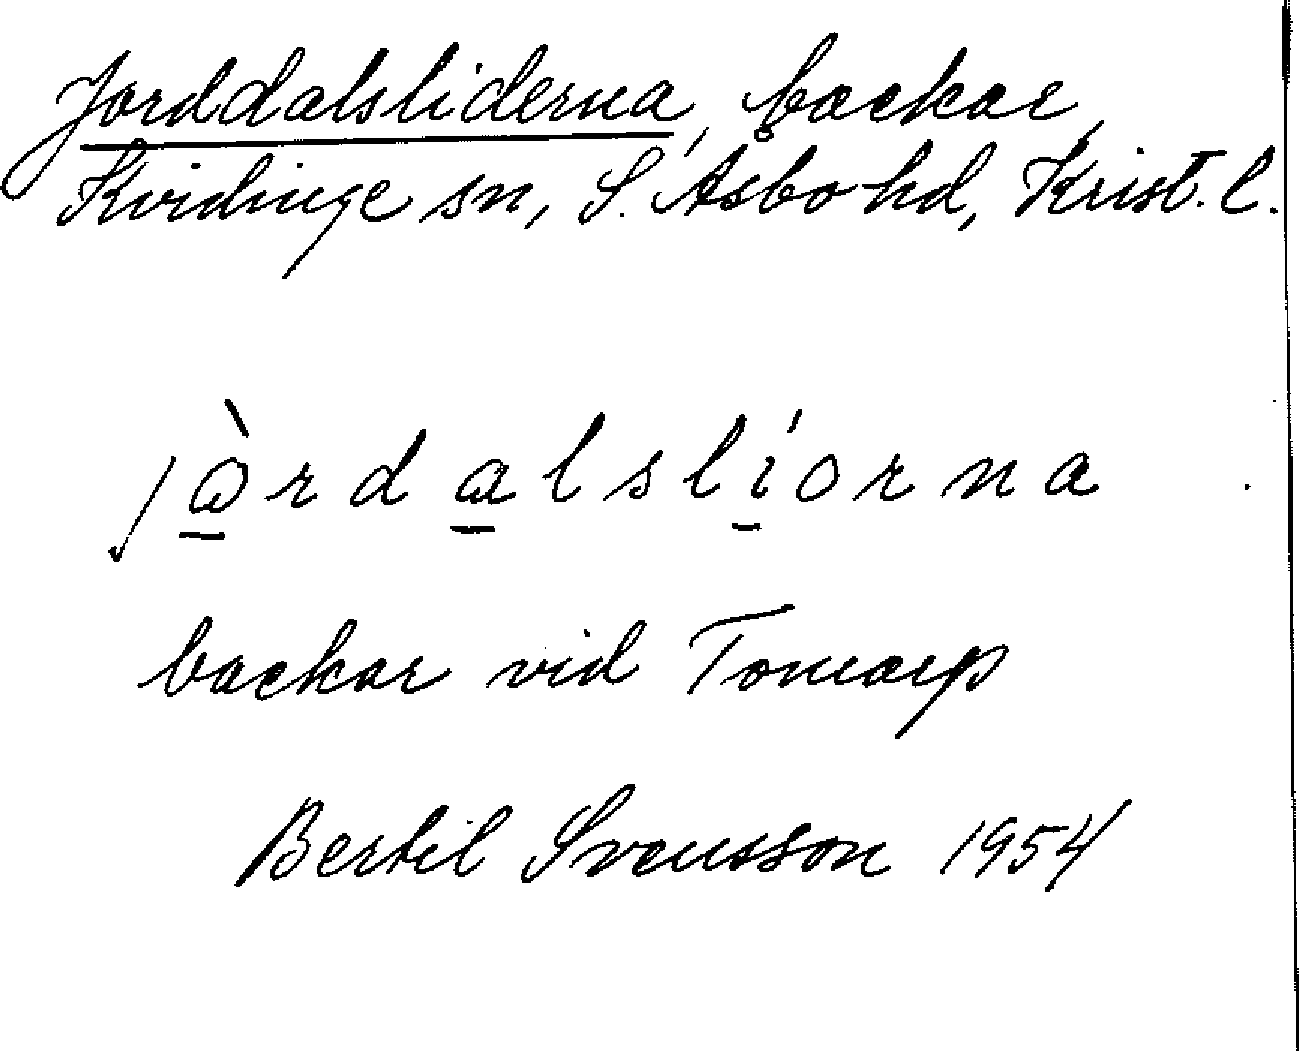 Jorddalsliderna, backar,
Kvidinge sn, S. Åsbo hd, Krist. l.
jò̲rda̲lslí̲orna
backar vid Tomarp
Bertil Svensson 1954